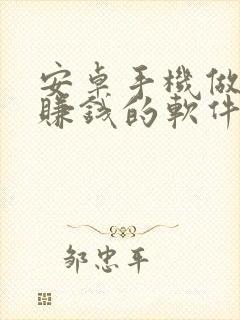 安卓手機做
賺錢的軟件
鄒忠平